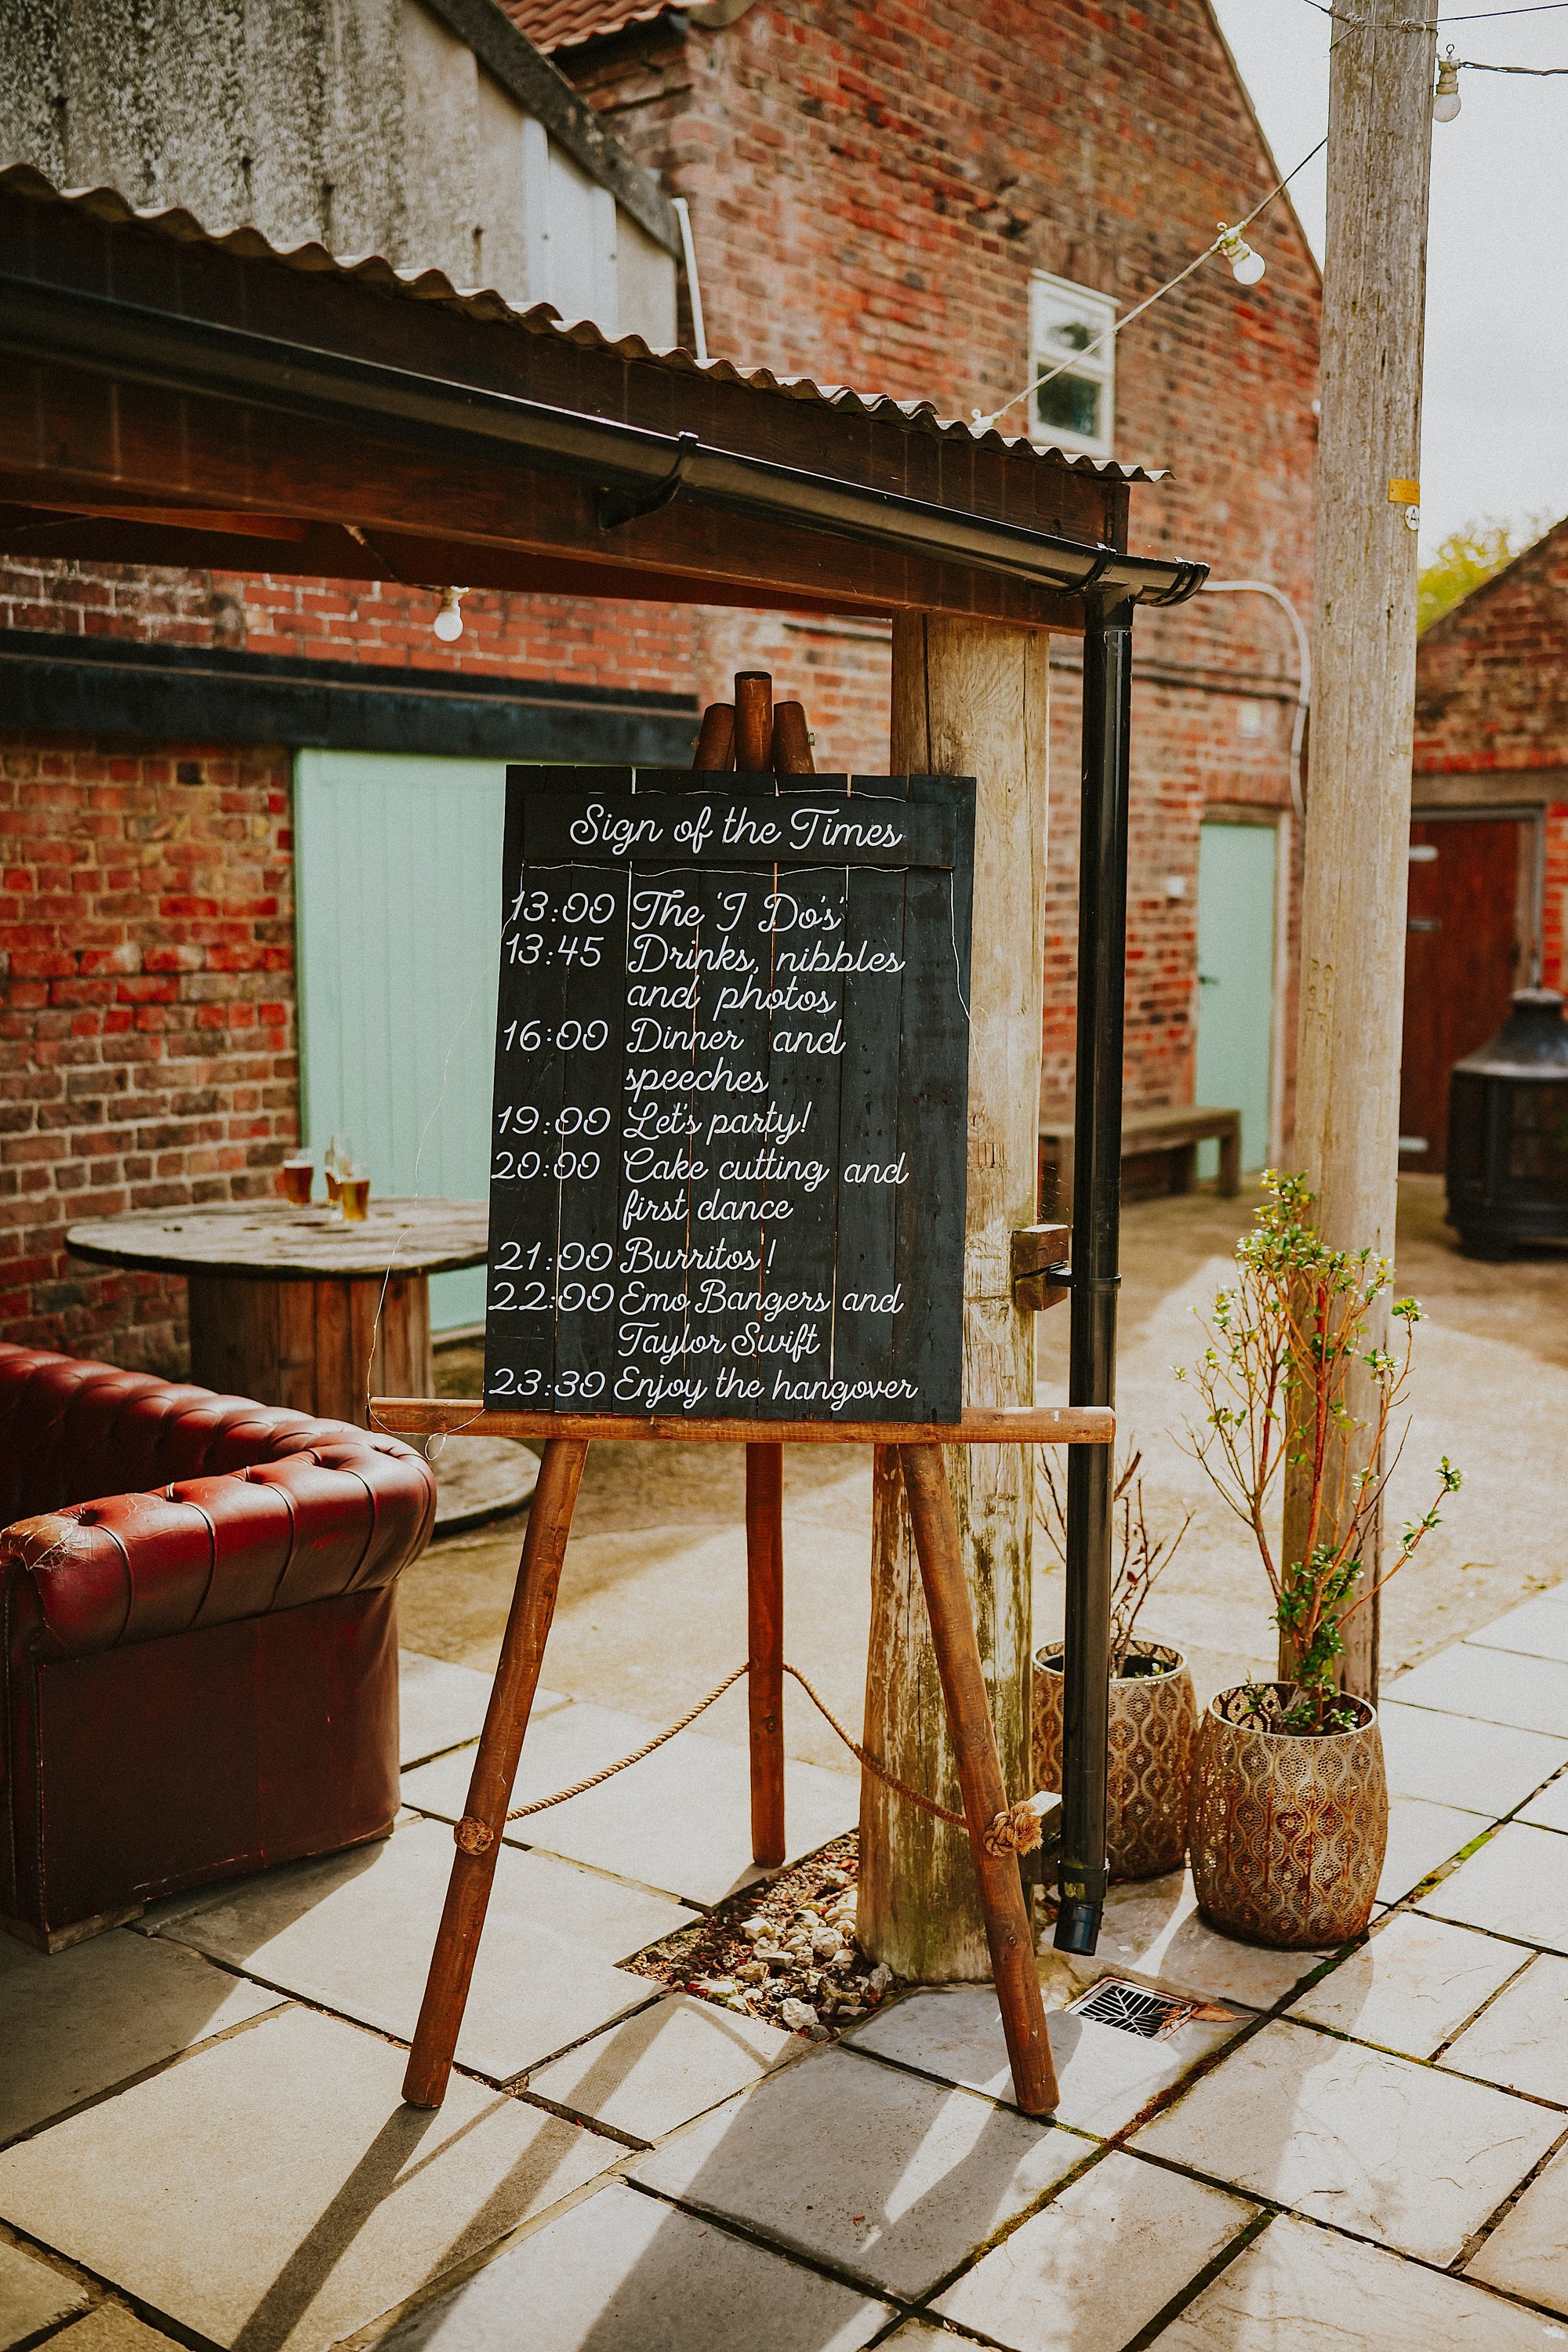 Sign of the Times
13:00 The 'I Do's'
13:45 Drinks, nibbles
and photos
16:00 Dinner and
speeches
19:00 Let's party!
20:00 Cake cutting and
first dance
21:00 Burritos!
22:00 Emo Bangers and
Taylor Swift
23:30 Enjoy the hangover